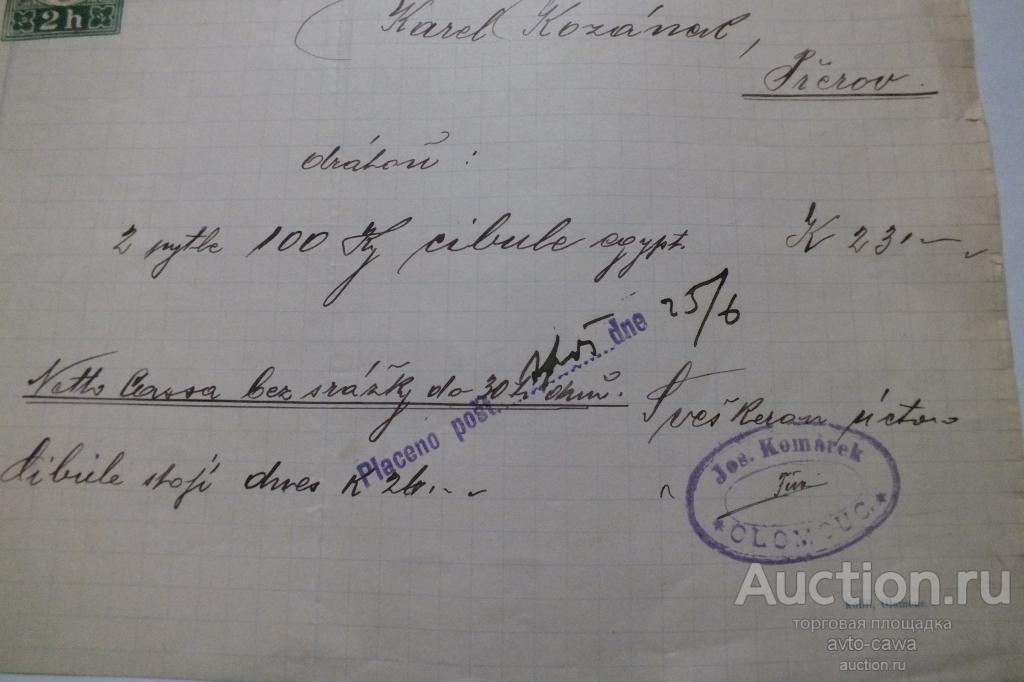 2h
Karel Kozánek,
Přerov.
2 pytle 100 Kg cibule egypt. K 23.–
Placeno pošt. dne 25/6
Netto Cassa bez srážky do 30ti dnů.
Cibule stojí dnes K 26.–
Jos. Komárek
OLOMOUC.
Auction.ru
торговая площадка
avto-cawa
auction.ru